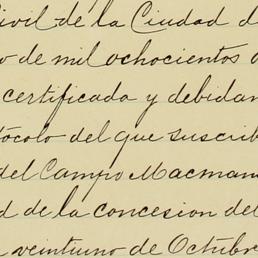 Civil de la Ciudad d
o de mil ochocientos
certificada y debidam
tócolo del que suscrib
del Campo Macman
d de la concesion del
veintiuno de Octubre